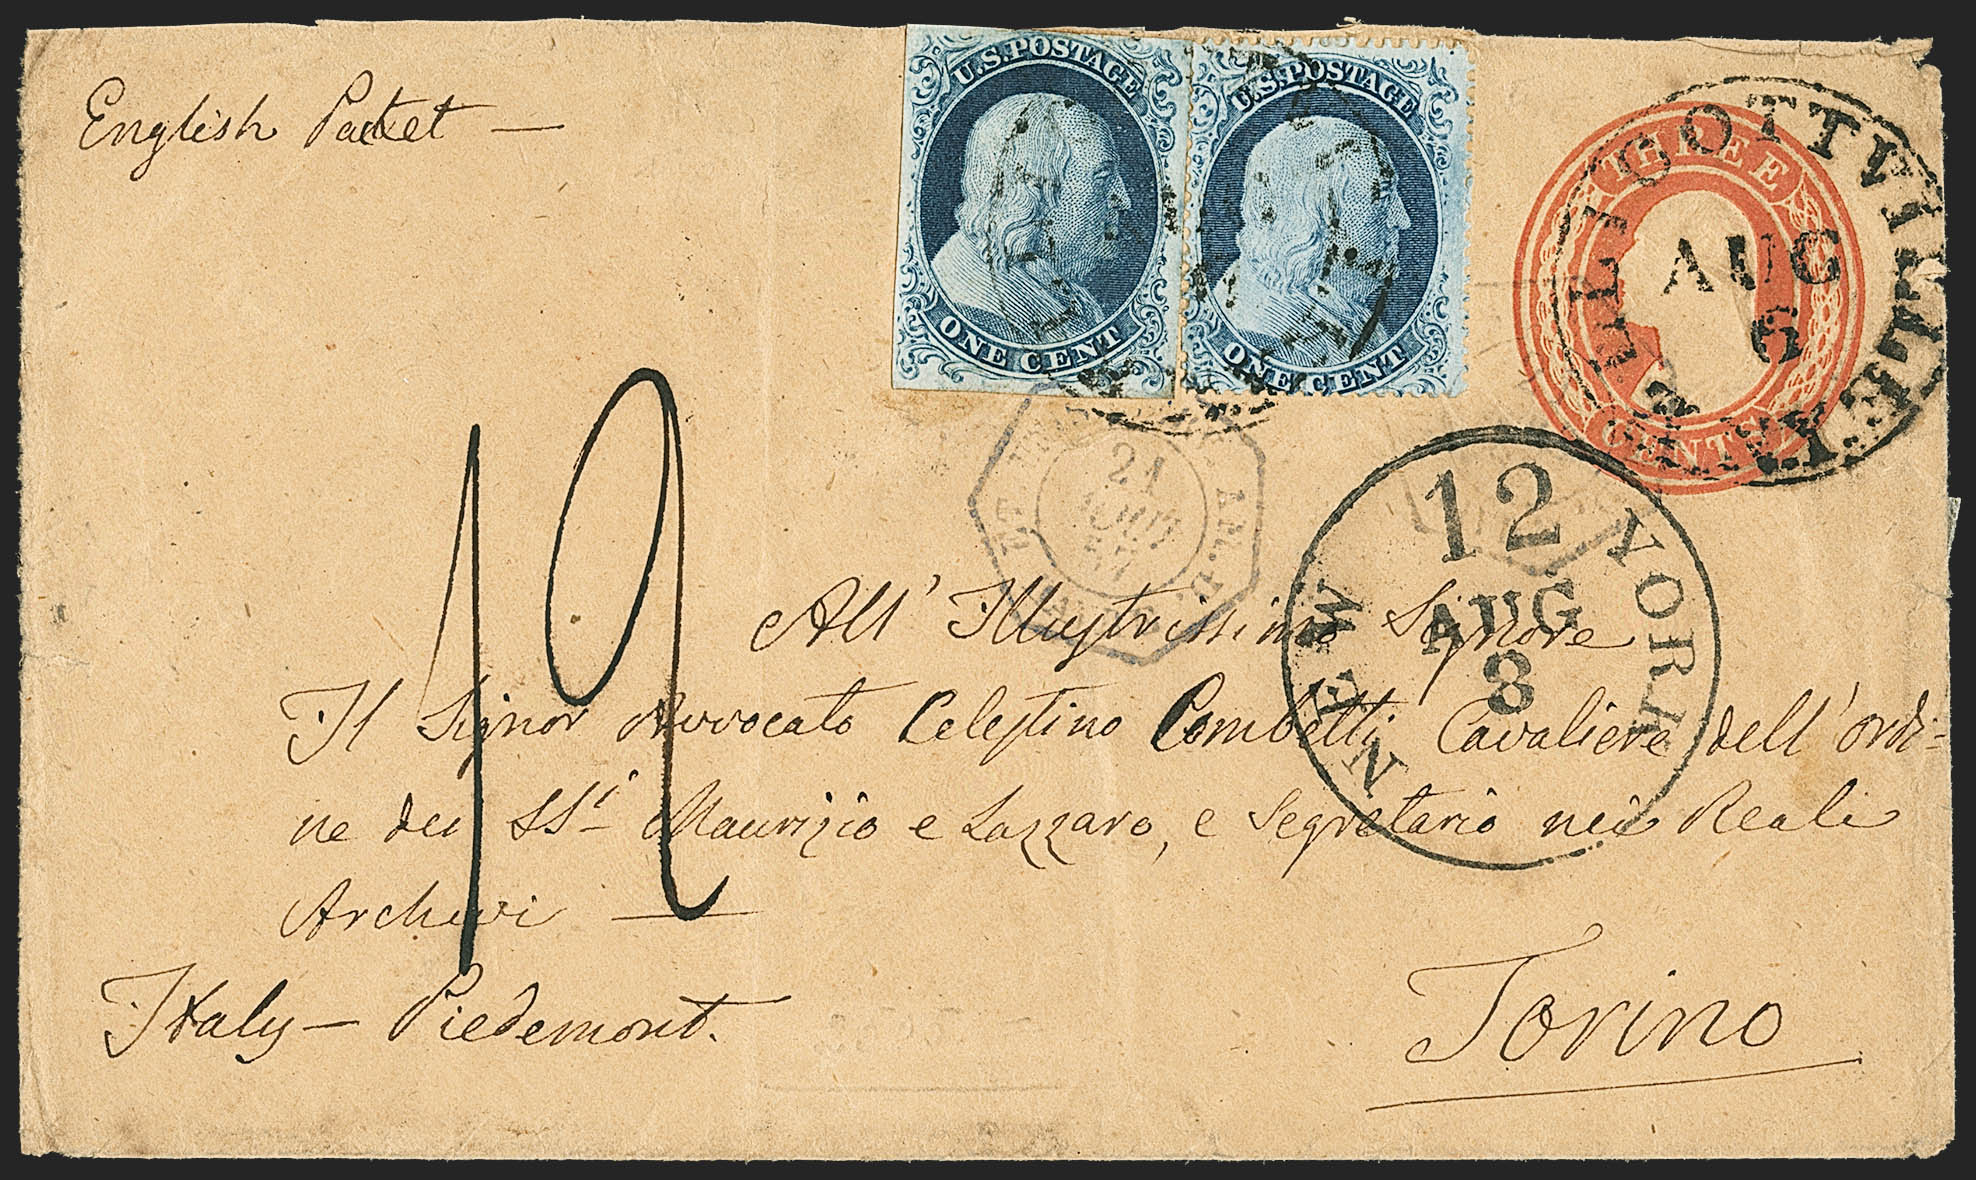 English Packet —
U.S. POSTAGE
ONE CENT
U.S. POSTAGE
ONE CENT
THREE
CENTS
ELLICOTTVILLE
AUG
6
21
AOUT
57
NEW YORK
12
AUG
8
12
All' Illustrissimo Signore
Il Signor Avvocato Celestino Combetti Cavaliere dell' ordi=
ne dei SS.i Maurizio e Lazzaro, e Segretario nei Reali
Archivi —
Italy — Piedemont.
Torino